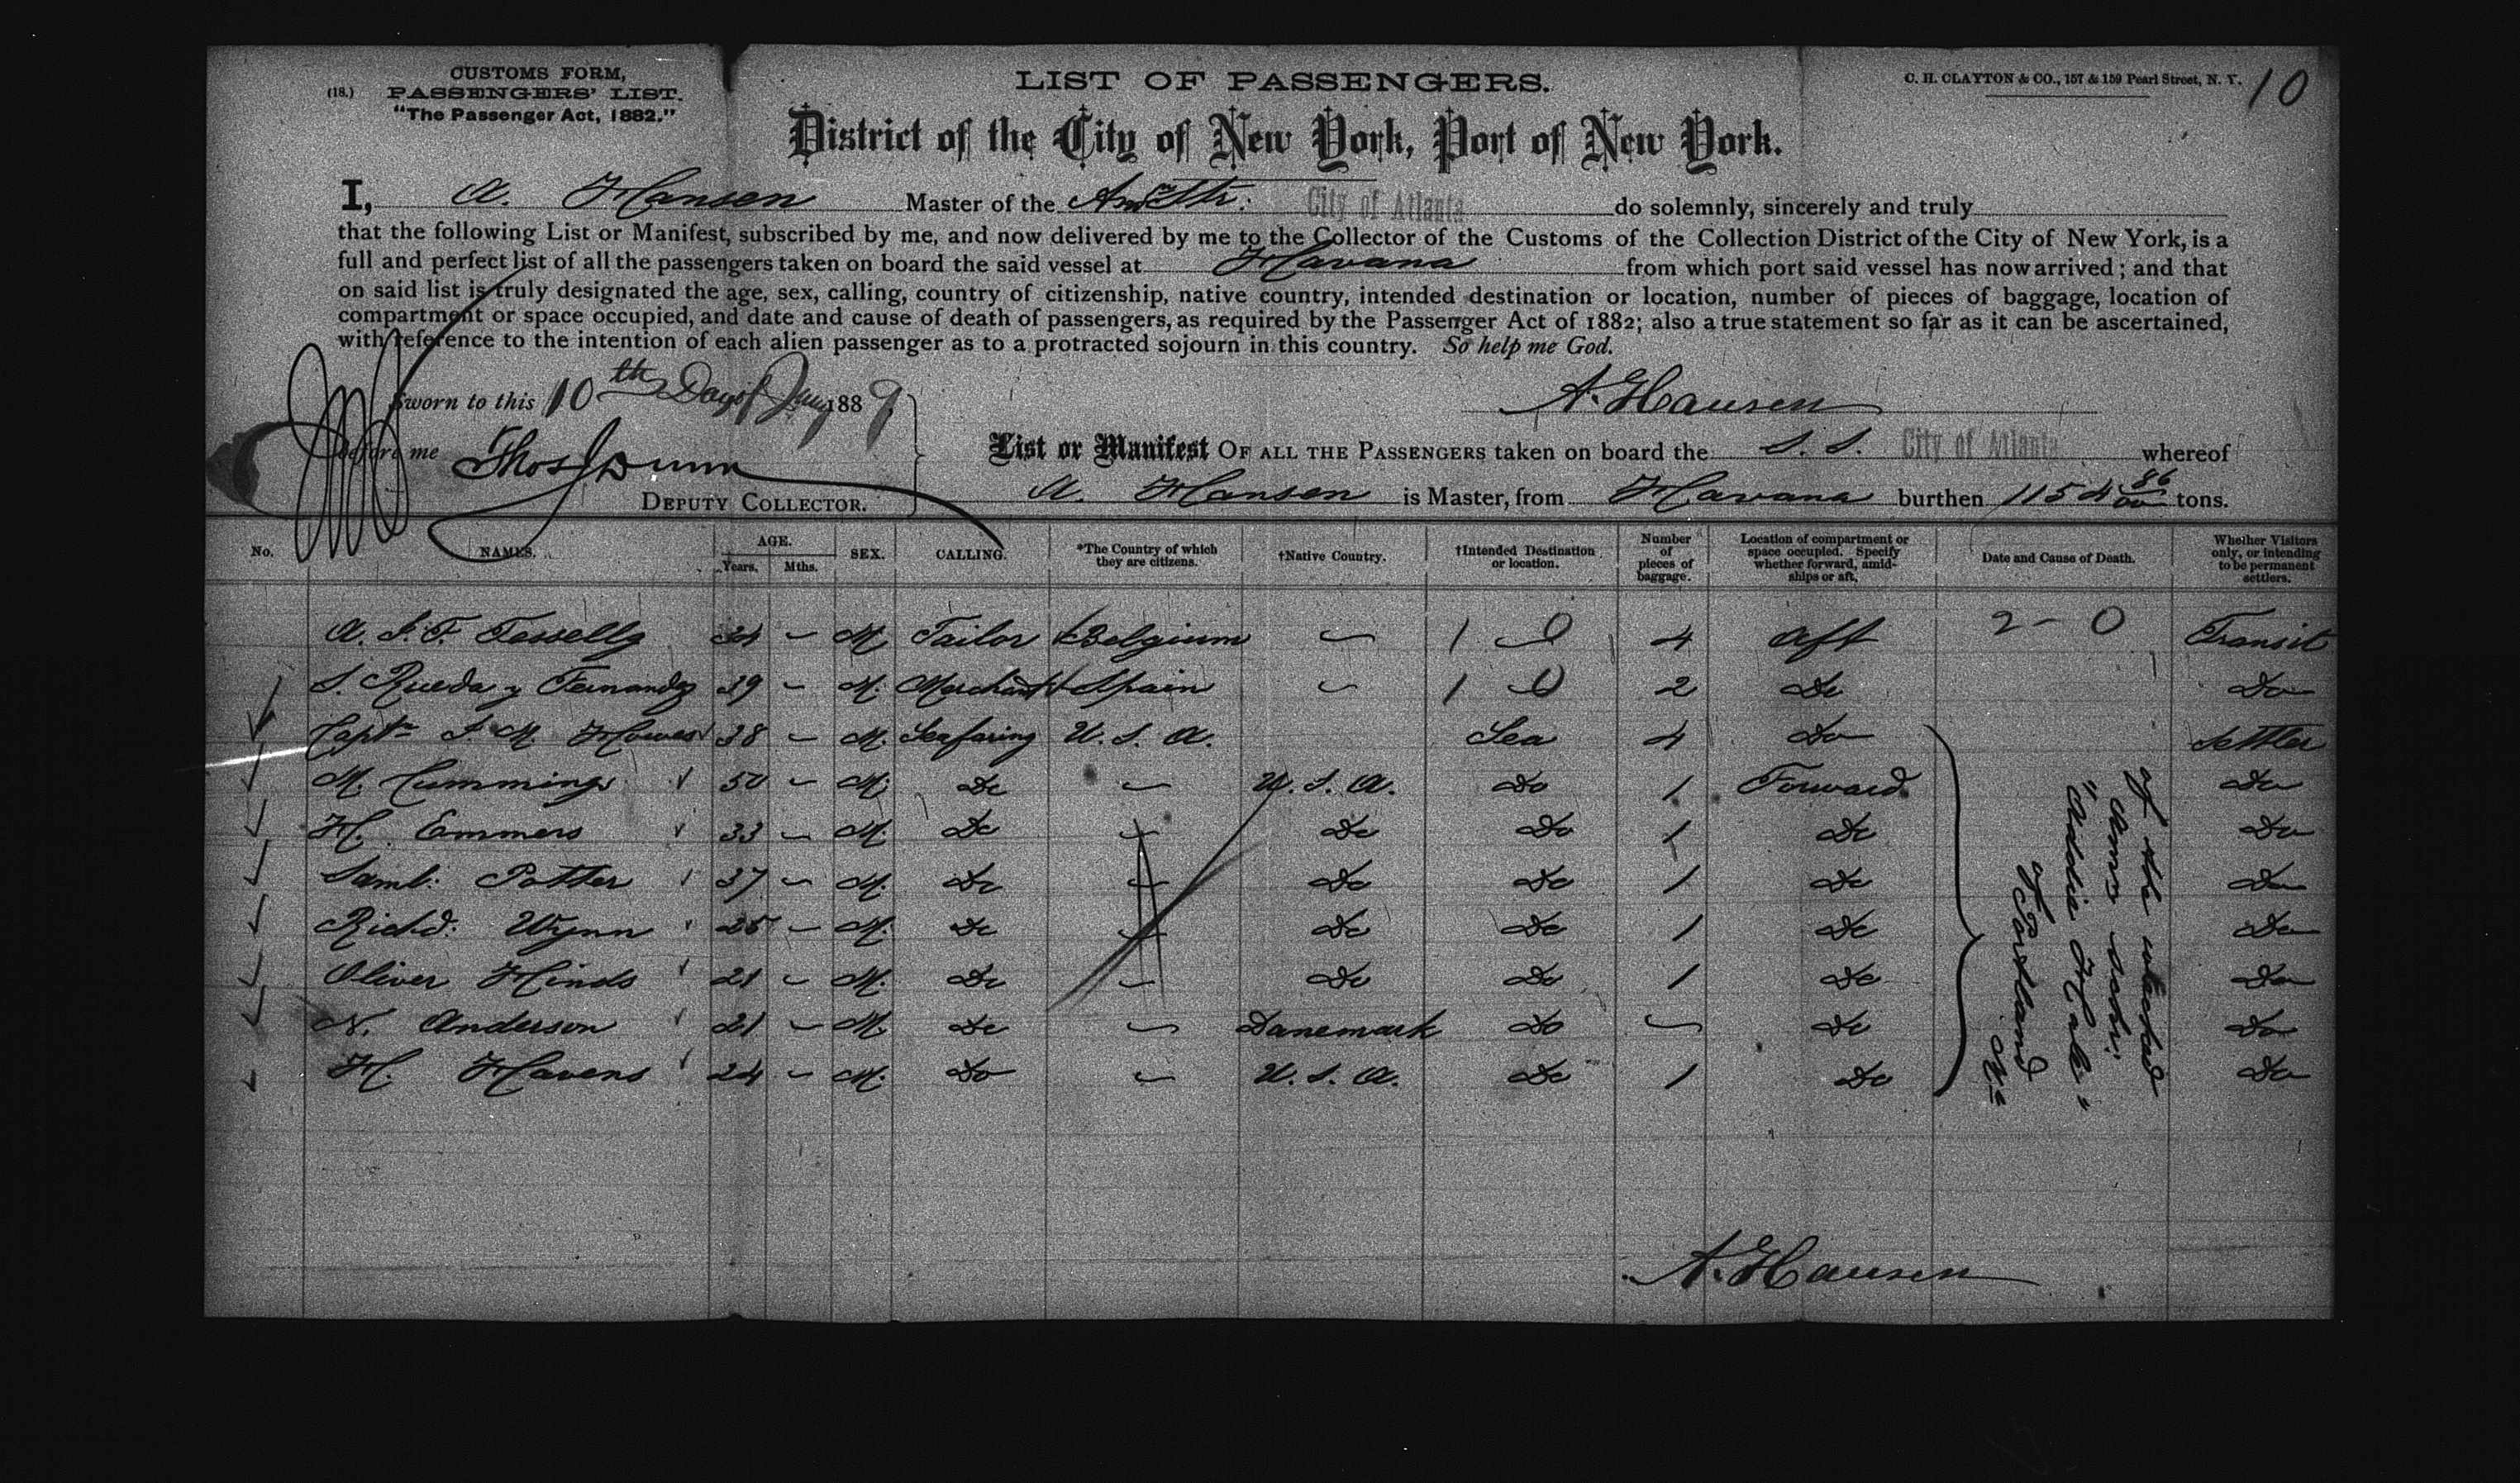 CUSTOMS FORM,
(18.) PASSENGERS' LIST.
"The Passenger Act, 1882."
LIST OF PASSENGERS.
C. H. CLAYTON & CO., 157 & 159 Pearl Street, N. Y.
10
District of the City of New York, Port of New York.
I, A. Hansen Master of the Amcn Str: City of Atlanta do solemnly, sincerely and truly
that the following List or Manifest, subscribed by me, and now delivered by me to the Collector of the Customs of the Collection District of the City of New York, is a
full and perfect list of all the passengers taken on board the said vessel at Havana from which port said vessel has now arrived; and that
on said list is truly designated the age, sex, calling, country of citizenship, native country, intended destination or location, number of pieces of baggage, location of
compartment or space occupied, and date and cause of death of passengers, as required by the Passenger Act of 1882; also a true statement so far as it can be ascertained,
with reference to the intention of each alien passenger as to a protracted sojourn in this country. So help me God.
Sworn to this 10th Day of Jany 1889
A. Hansen
before me Thos Dunn
DEPUTY COLLECTOR.
List or Manifest OF ALL THE PASSENGERS taken on board the S. S. City of Atlanta whereof
A. Hansen is Master, from Havana burthen 1154 86/00 tons.
No. NAMES. AGE. Years. Mths. SEX. CALLING. *The Country of which they are citizens. †Native Country. †Intended Destination or location. Number of pieces of baggage. Location of compartment or space occupied. Specify whether forward, amidships or aft. Date and Cause of Death. Whether Visitors only, or intending to be permanent settlers.
A. F. F. Tesselly 34 - M. Tailor Belgium - 1 0 4 Aft 2 - 0 Transit
S. Rueda y Fernandez 39 - M. Merchant Spain - 1 0 2 Do Do
Captn S. M. Howes 38 - M. Seafaring U. S. A. Sea 4 Do Settler
M. Cummings 50 - M. Do - U. S. A. Do 1 Forward Do
H. Emmers 33 - M. Do - Do Do 1 Do Do
Saml: Potter 37 - M. Do - Do Do 1 Do Do
Richd: Wynn 25 - M. Do - Do Do 1 Do Do
Oliver Hinds 21 - M. Do - Do Do 1 Do Do
N. Anderson 21 - M. Do - Danemark Do - Do Do
H. Havens 24 - M. Do - U. S. A. Do 1 Do Do
of the wrecked
Amn schr:
"Addie Hale"
of Portland
Me
A. Hansen